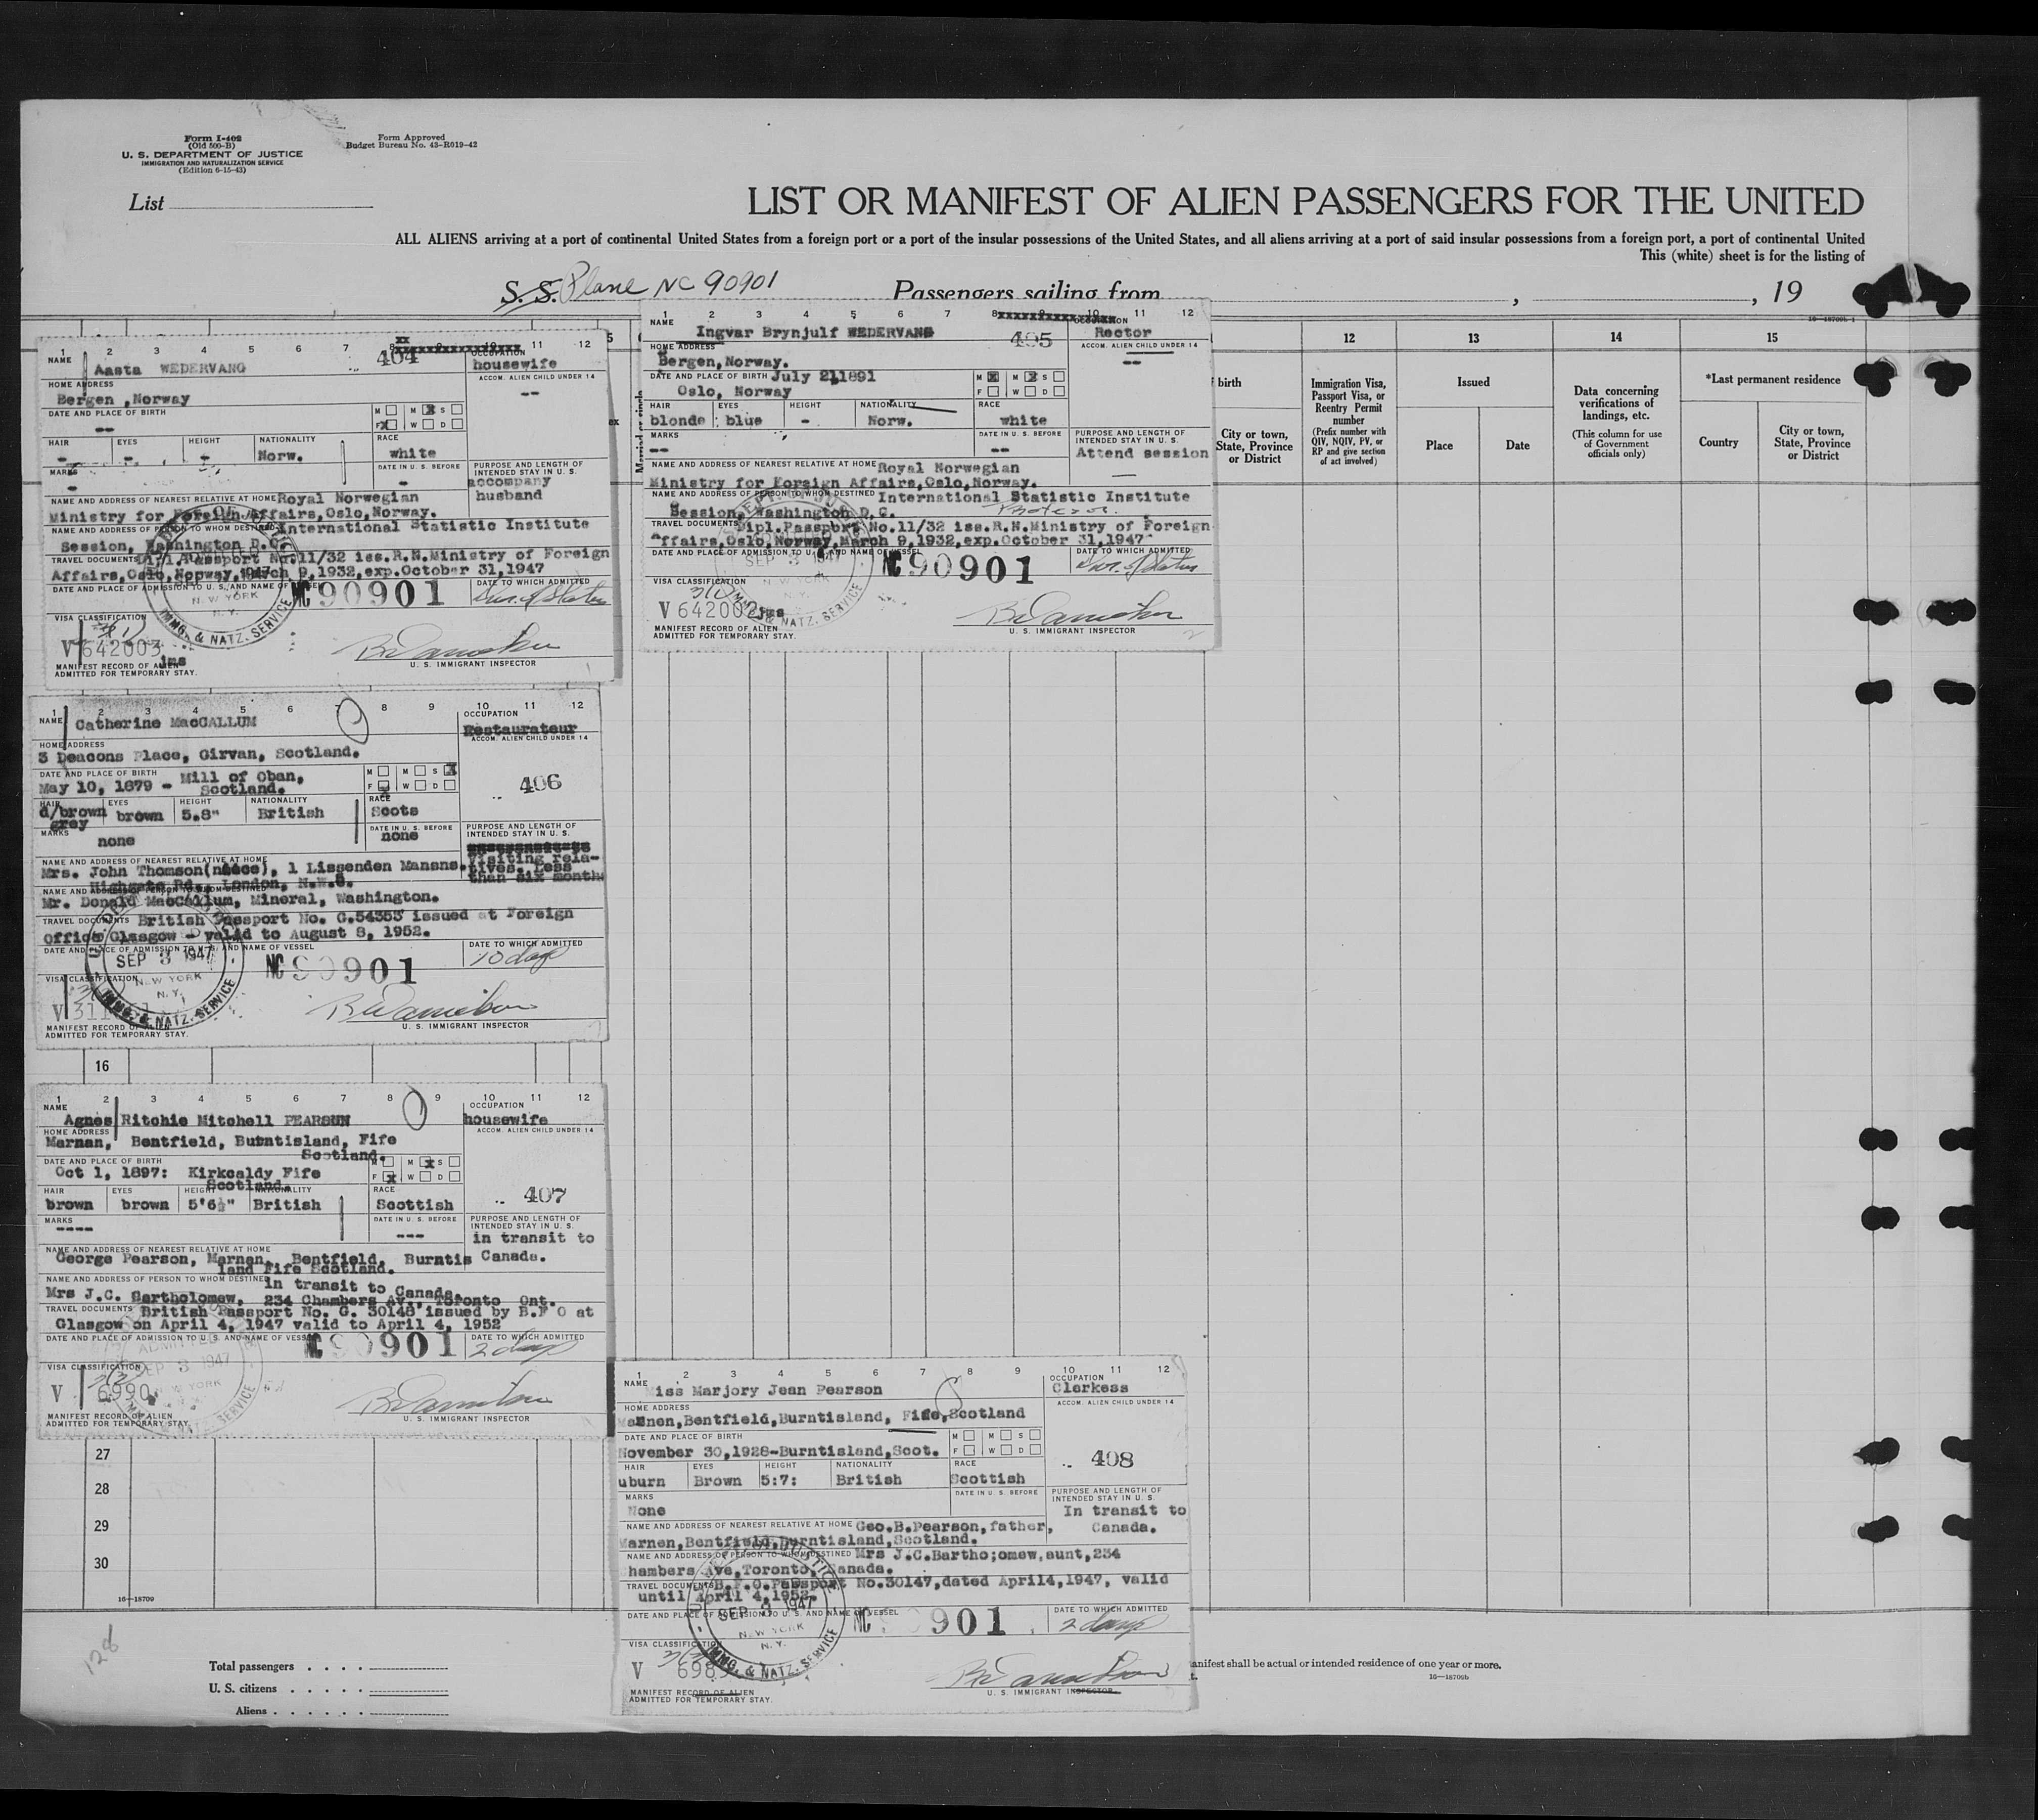 Form I-402
(Old 500-B)
U. S. DEPARTMENT OF JUSTICE
IMMIGRATION AND NATURALIZATION SERVICE
(Edition 6-15-43)
Form Approved
Budget Bureau No. 43-R019-42
List
LIST OR MANIFEST OF ALIEN PASSENGERS FOR THE UNITED
ALL ALIENS arriving at a port of continental United States from a foreign port or a port of the insular possessions of the United States, and all aliens arriving at a port of said insular possessions from a foreign port, a port of continental United
This (white) sheet is for the listing of
S. S. Plane NC 90901
Passengers sailing from , , 19
1 2 3 4 5 6 7 8 9 10 11 12
NAME Aasta WEDERVANG
404
OCCUPATION
housewife
HOME ADDRESS
Bergen ,Norway
ACCOM. ALIEN CHILD UNDER 14
--
DATE AND PLACE OF BIRTH
--
M M X S
F X W D
HAIR EYES HEIGHT NATIONALITY RACE
- - - Norw. white
MARKS
-
DATE IN U. S. BEFORE
-
PURPOSE AND LENGTH OF
INTENDED STAY IN U. S.
accompany
husband
NAME AND ADDRESS OF NEAREST RELATIVE AT HOME Royal Norwegian
Ministry for Foreign Affairs,Oslo,Norway.
NAME AND ADDRESS OF PERSON TO WHOM DESTINED International Statistic Institute
Session, Washington D.C.
TRAVEL DOCUMENTS Dipl.Passport No.11/32 iss.R.N.Ministry of Foreign
Affairs,Oslo,Norway,March 9,1932,exp.October 31,1947
DATE AND PLACE OF ADMISSION TO U. S. AND NAME OF VESSEL
NC 90901
DATE TO WHICH ADMITTED
VISA CLASSIFICATION
3(1)
V 642003
jms
MANIFEST RECORD OF ALIEN
ADMITTED FOR TEMPORARY STAY.
U. S. IMMIGRANT INSPECTOR
1 2 3 4 5 6 7 8 9 10 11 12
NAME
Ingvar Brynjulf WEDERVANG
405
OCCUPATION
Rector
HOME ADDRESS
Bergen,Norway.
ACCOM. ALIEN CHILD UNDER 14
--
DATE AND PLACE OF BIRTH July 21,1891
Oslo, Norway
M X M X S
F W D
HAIR EYES HEIGHT NATIONALITY RACE
blonde blue - Norw. white
MARKS
--
DATE IN U. S. BEFORE
--
PURPOSE AND LENGTH OF
INTENDED STAY IN U. S.
Attend session
NAME AND ADDRESS OF NEAREST RELATIVE AT HOME Royal Norwegian
Ministry for Foreign Affairs,Oslo,Norway.
NAME AND ADDRESS OF PERSON TO WHOM DESTINED International Statistic Institute
Session, Washington D.C.
TRAVEL DOCUMENTS Dipl.Passport No.11/32 iss.R.N.Ministry of Foreign
Affairs,Oslo,Norway,March 9,1932,exp.October 31,1947
DATE AND PLACE OF ADMISSION TO U. S. AND NAME OF VESSEL
SEP 3 1947
NEW YORK
N. Y.
IMMG. & NATZ. SERVICE
NC 90901
DATE TO WHICH ADMITTED
VISA CLASSIFICATION
3(1)
V 642002
jms
MANIFEST RECORD OF ALIEN
ADMITTED FOR TEMPORARY STAY.
U. S. IMMIGRANT INSPECTOR
birth
City or town,
State, Province
or District
12
Immigration Visa,
Passport Visa, or
Reentry Permit
number
(Prefix number with
QIV, NQIV, PV, or
RP and give section
of act involved)
13
Issued
Place
Date
14
Data concerning
verifications of
landings, etc.
(This column for use
of Government
officials only)
15
*Last permanent residence
Country
City or town,
State, Province
or District
1 2 3 4 5 6 7 8 9 10 11 12
NAME Catherine MacCALLUM
OCCUPATION
Restaurateur
HOME ADDRESS
3 Deacons Place, Girvan, Scotland.
ACCOM. ALIEN CHILD UNDER 14
DATE AND PLACE OF BIRTH Mill of Oban,
May 10, 1879 - Scotland.
M M S X
F X W D
406
HAIR EYES HEIGHT NATIONALITY RACE
d/brown grey brown 5.8" British Scots
MARKS
none
DATE IN U. S. BEFORE
none
PURPOSE AND LENGTH OF
INTENDED STAY IN U. S.
Visiting rela-
tives. Less
than six months
NAME AND ADDRESS OF NEAREST RELATIVE AT HOME
Mrs. John Thomson(niece), 1 Lissenden Mansns.
Highgate Rd., London, N.W.5.
NAME AND ADDRESS OF PERSON TO WHOM DESTINED
Mr. Donald MacCallum, Mineral, Washington.
TRAVEL DOCUMENTS British Passport No. C.54353 issued at Foreign
Office Glasgow - valid to August 8, 1952.
DATE AND PLACE OF ADMISSION TO U. S. AND NAME OF VESSEL
SEP 3 1947
NEW YORK
N. Y.
IMMG. & NATZ. SERVICE
NC 90901
DATE TO WHICH ADMITTED
10 days
VISA CLASSIFICATION
MANIFEST RECORD OF ALIEN
ADMITTED FOR TEMPORARY STAY.
U. S. IMMIGRANT INSPECTOR
16
1 2 3 4 5 6 7 8 9 10 11 12
NAME
Agnes Ritchie Mitchell PEARSON
OCCUPATION
housewife
HOME ADDRESS
Marnan, Bentfield, Burntisland, Fife
Scotland.
ACCOM. ALIEN CHILD UNDER 14
DATE AND PLACE OF BIRTH
Oct 1, 1897: Kirkcaldy Fife
Scotland.
M M X S
F X W D
407
HAIR EYES HEIGHT NATIONALITY RACE
brown brown 5'6½" British Scottish
MARKS
----
DATE IN U. S. BEFORE
---
PURPOSE AND LENGTH OF
INTENDED STAY IN U. S.
in transit to
Canada.
NAME AND ADDRESS OF NEAREST RELATIVE AT HOME
George Pearson, Marnan, Bentfield, Burntis
land Fife Scotland.
NAME AND ADDRESS OF PERSON TO WHOM DESTINED in transit to Canada.
Mrs J.C. Bartholomew, 234 Chambers Av., Toronto Ont.
TRAVEL DOCUMENTS British Passport No. G. 30148 issued by B.F O at
Glasgow on April 4, 1947 valid to April 4, 1952
DATE AND PLACE OF ADMISSION TO U. S. AND NAME OF VESSEL
ADMITTED
SEP 3 1947
NEW YORK
NC 90901
DATE TO WHICH ADMITTED
2 days
VISA CLASSIFICATION
V 6990
MANIFEST RECORD OF ALIEN
ADMITTED FOR TEMPORARY STAY.
U. S. IMMIGRANT INSPECTOR
1 2 3 4 5 6 7 8 9 10 11 12
NAME
iss Marjory Jean Pearson
OCCUPATION
Clerkess
HOME ADDRESS
Marnen,Bentfield,Burntisland, Fife,Scotland
ACCOM. ALIEN CHILD UNDER 14
DATE AND PLACE OF BIRTH
November 30,1928-Burntisland,Scot.
M M S
F W D
408
HAIR EYES HEIGHT NATIONALITY RACE
uburn Brown 5:7: British Scottish
MARKS
None
DATE IN U. S. BEFORE
PURPOSE AND LENGTH OF
INTENDED STAY IN U. S.
In transit to
Canada.
NAME AND ADDRESS OF NEAREST RELATIVE AT HOME Geo.B.Pearson,father,
Marnen,Bentfield,Burntisland,Scotland.
NAME AND ADDRESS OF PERSON TO WHOM DESTINED Mrs J.C.Bartho;omew,aunt,234
hambers Ave,Toronto,Canada.
TRAVEL DOCUMENTS B.F.O.Passport No.30147,dated April4,1947, valid
until April 4,1952.
DATE AND PLACE OF ADMISSION TO U. S. AND NAME OF VESSEL
SEP 3 1947
NEW YORK
N. Y.
IMMG. & NATZ. SERVICE
NC 90901
DATE TO WHICH ADMITTED
2 days
VISA CLASSIFICATION
V 698
MANIFEST RECORD OF ALIEN
ADMITTED FOR TEMPORARY STAY.
U. S. IMMIGRANT INSPECTOR
27
28
29
30
16—18709
128
Total passengers . . . .
U. S. citizens . . . . .
Aliens . . . . . .
anifest shall be actual or intended residence of one year or more.
16—18709b